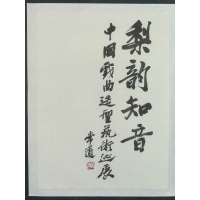 梨韵知音
中国戏曲造型艺术巡展